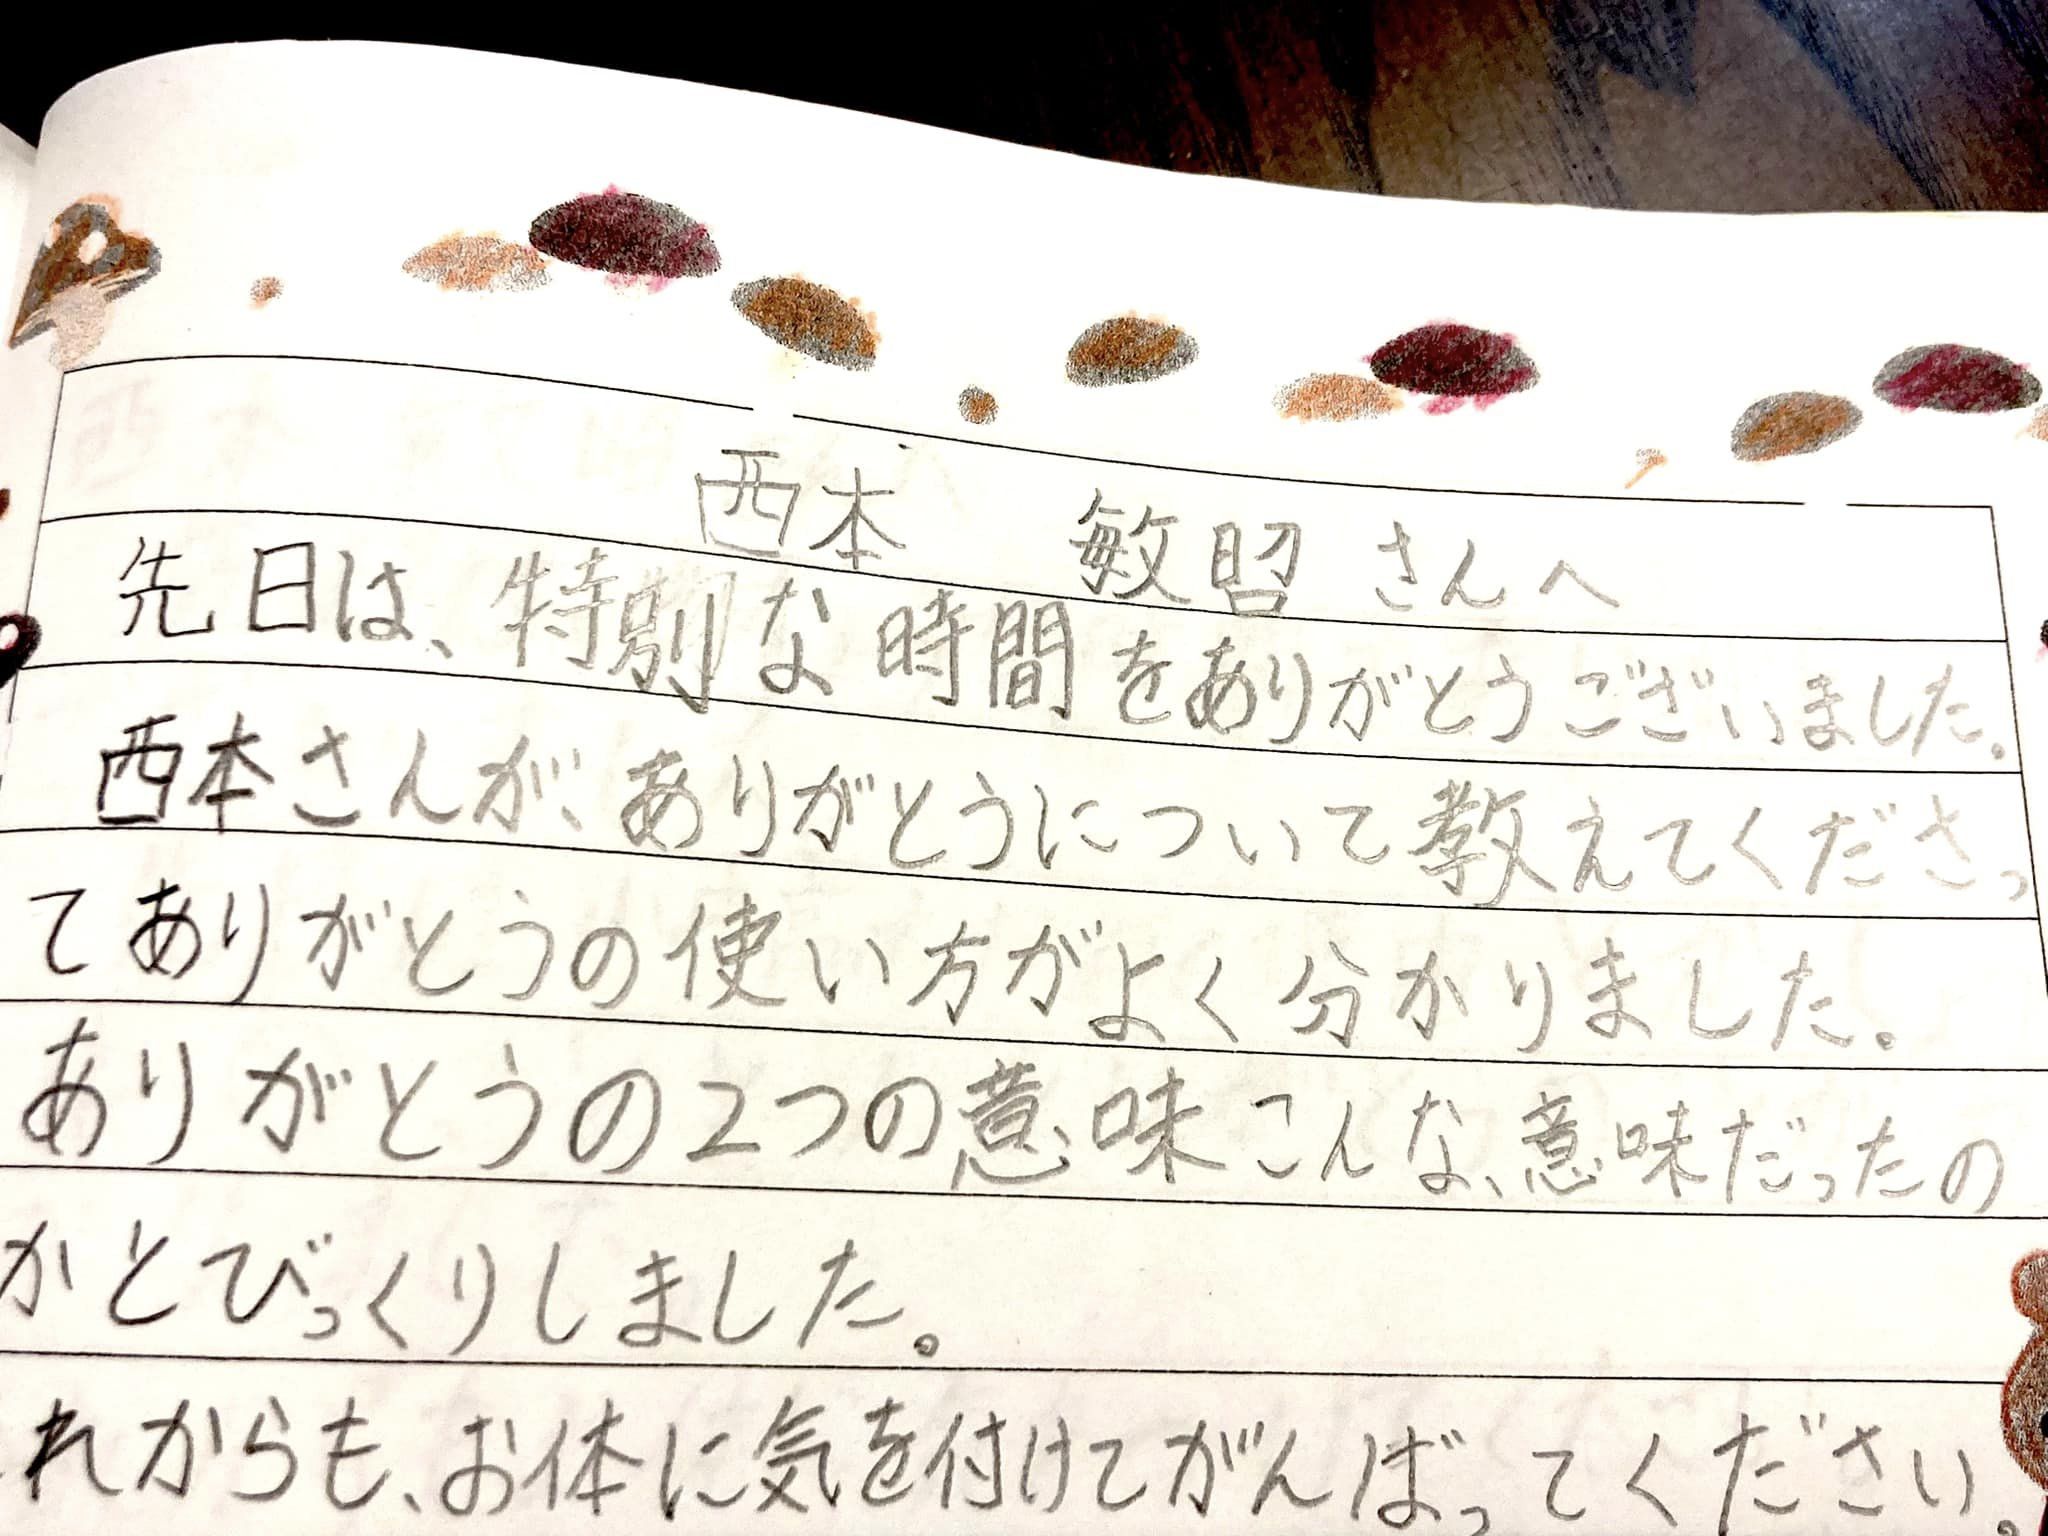 西本　敏習さんへ
先日は、特別な時間をありがとうございました。
西本さんが、ありがとうについて教えてくださっ
てありがとうの使い方がよく分かりました。
ありがとうの2つの意味こんな、意味だったの
かとびっくりしました。
れからも、お体に気を付けてがんばってください。